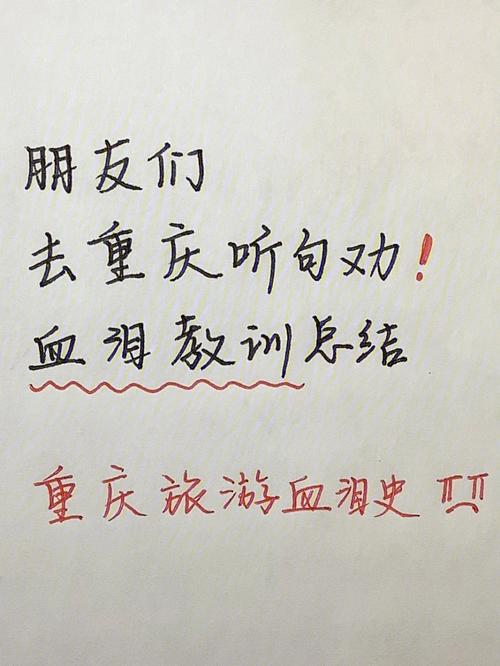 朋友们
去重庆听句劝!
血泪教训总结
重庆旅游血泪史